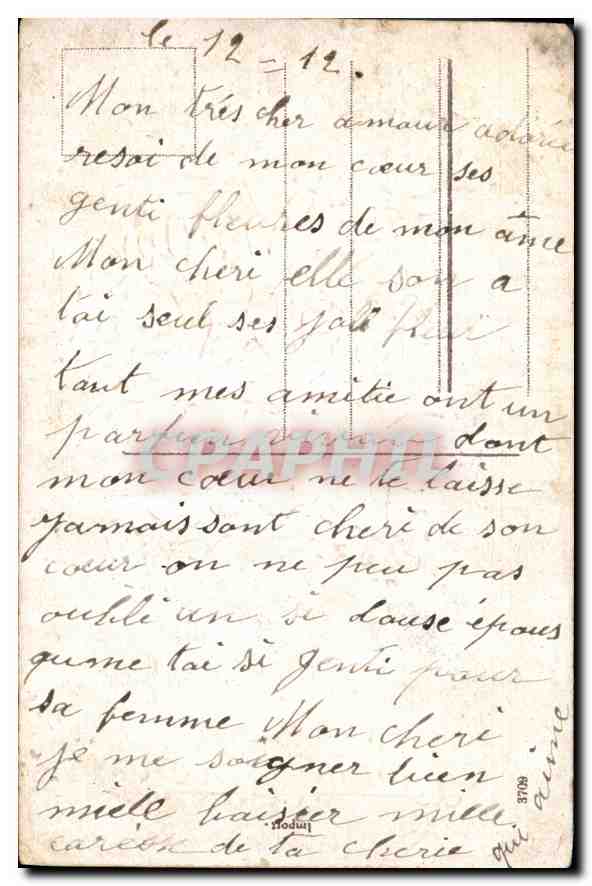 le 12 - 12.
Mon trés cher amour adorée
resoi de mon cœur ses
genti fleures de mon âme
Mon cheri elle son a
toi seul ses joli fleur
tant mes amitie ont un
parfun dont
mon cœur ne te laisse
jamais sant cheri de son
cœur on ne peu pas
oublié un si douse épous
qume toi si genti pour
sa femme Mon cheri
je me soigner bien
mille baisier mille
de ta cherie
qui aime
3709
Import.
CPAPHIL